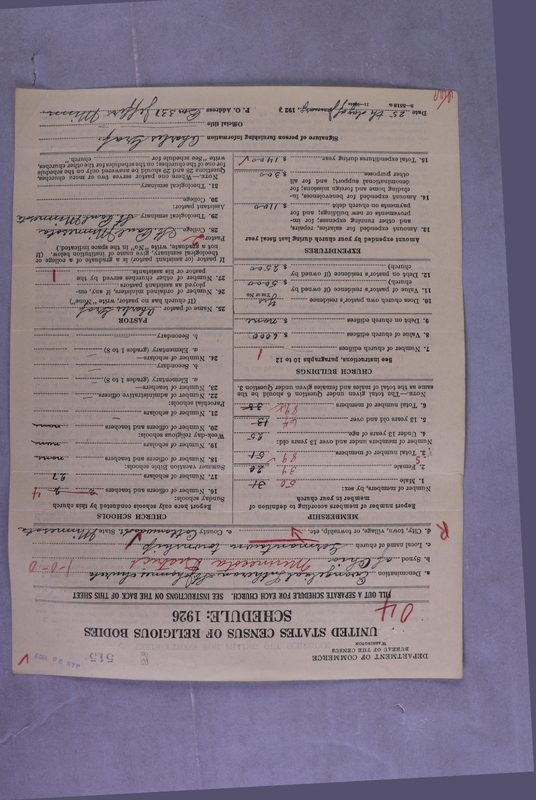 DEPARTMENT OF COMMERCE
BUREAU OF THE CENSUS
WASHINGTON
E
515
UNITED STATES CENSUS OF RELIGIOUS BODIES
SCHEDULE: 1926
04
FILL OUT A SEPARATE SCHEDULE FOR EACH CHURCH. SEE INSTRUCTIONS ON THE BACK OF THIS SHEET
a. Denomination Evangelical Lutheran
b. Synod of Ohio Minnesota District 1-0-0
c. Local name of church Germantown township
d. City, town, village, or township, etc. e. County Cottonwood State Minnesota
R
MEMBERSHIP
Report number of members according to definition of member in your church
Number of members, by sex:
1. Male 50
2. Female 39
3. Total number of members 89
Number of members under and over 13 years old:
4. Under 13 years of age 25
5. 13 years old and over 64
6. Total number of members 89
NOTE.—The total given under Question 6 should be the same as the total of males and females given under Question 3.
CHURCH BUILDINGS
See instructions, paragraphs 10 to 12
7. Number of church edifices 1
8. Value of church edifices $ 6000
9. Debt on church edifices $ none
10. Does church own pastor's residence yes
Yes or No
11. Value of pastor's residence (if owned by church) $ 5000
12. Debt on pastor's residence (if owned by church) $ 2500
EXPENDITURES
Amount expended by your church during last fiscal year
13. Amount expended for salaries, repairs, and other running expenses; for improvements or new building; and for payments on church debt $ 1100
14. Amount expended for benevolences, including home and foreign missions; for denominational support; and for all other purposes $ 300
15. Total expenditures during year $ 1400
CHURCH SCHOOLS
Report here only schools conducted by this church
Sunday schools:
16. Number of officers and teachers 4
17. Number of scholars 27
Summer vacation Bible schools:
18. Number of officers and teachers none
19. Number of scholars none
Week-day religious schools:
20. Number of officers and teachers none
21. Number of scholars
Parochial schools:
22. Number of administrative officers
23. Number of teachers—
a. Elementary (grades 1 to 8)
b. Secondary
24. Number of scholars—
a. Elementary (grades 1 to 8)
b. Secondary
PASTOR
25. Name of pastor Charles Graf
(If church has no pastor, write "None")
26. Number of ordained ministers, if any, employed as assistant pastors
27. Number of other churches served by the pastor or his assistants 1
If pastor (or assistant pastor) is a graduate of college or theological seminary, give name of institution below. (If not a graduate, write "No" in the space indicated.)
Pastor:
28. College St. Paul Minnesota
29. Theological seminary St. Paul Minnesota
Assistant pastor:
30. College
31. Theological seminary
NOTE.—Where one pastor serves two or more churches, Questions 28 and 29 should be answered only on the schedule for one of the churches; on the schedules for the other churches, write "See schedule for church."
Signature of person furnishing information Charles Graf
Official title
P. O. Address Box 331 Jeffers Minn
Date 25 th day of January, 192